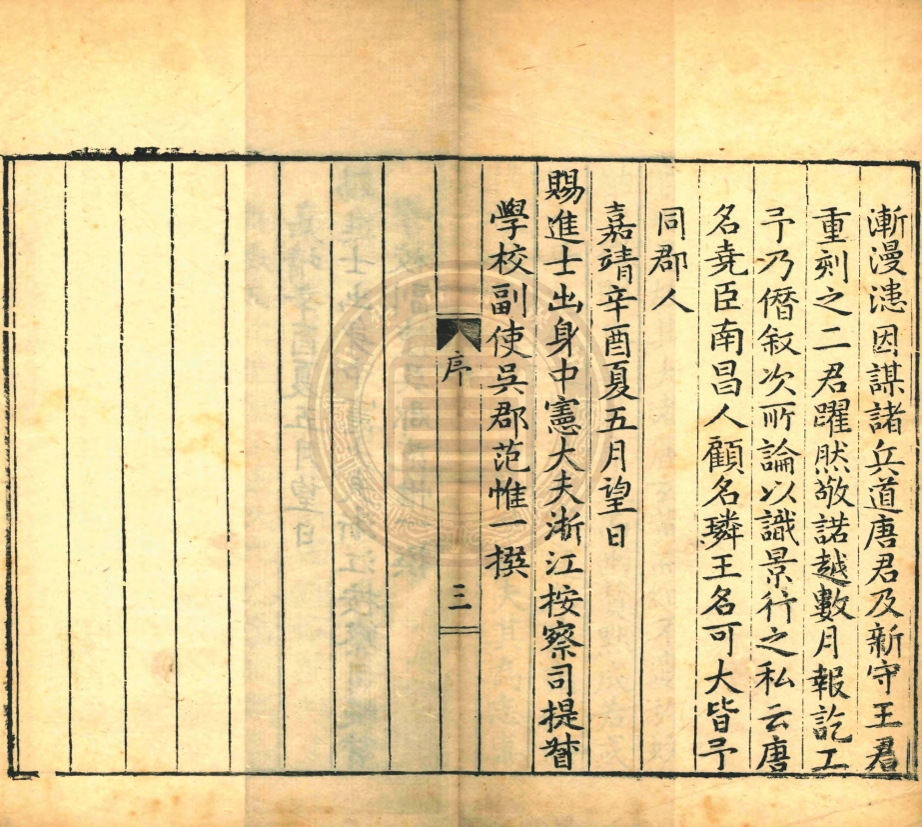 漸漫漶因謀諸兵道唐君及新守王君
重刻之二君躍然敬諾越數月報訖工
予乃僭叙次所論以識景行之私云唐
名堯臣南昌人顧名璘王名可大皆予
同郡人
嘉靖辛酉夏五月望日
賜進士出身中憲大夫浙江按察司提督
學校副使吳郡范惟一撰
序
三